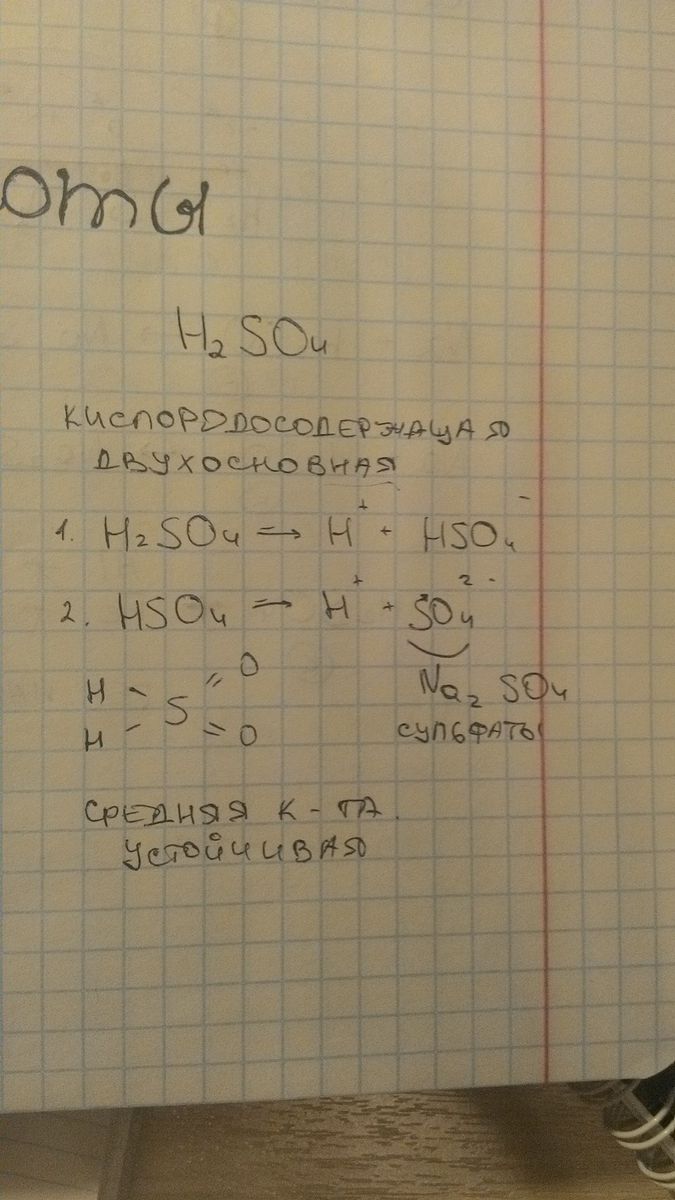 оты
H₂SO₄
КИСЛОРОДОСОДЕРЖАЩАЯ
ДВУХОСНОВНАЯ
1. H₂SO₄ ⇌ H⁺ + HSO₄⁻
2. HSO₄ ⇌ H⁺ + SO₄²⁻
H - S = O
H - = O
Na₂SO₄
СУЛЬФАТЫ
СРЕДНЯЯ К-ТА.
УСТОЙЧИВАЯ